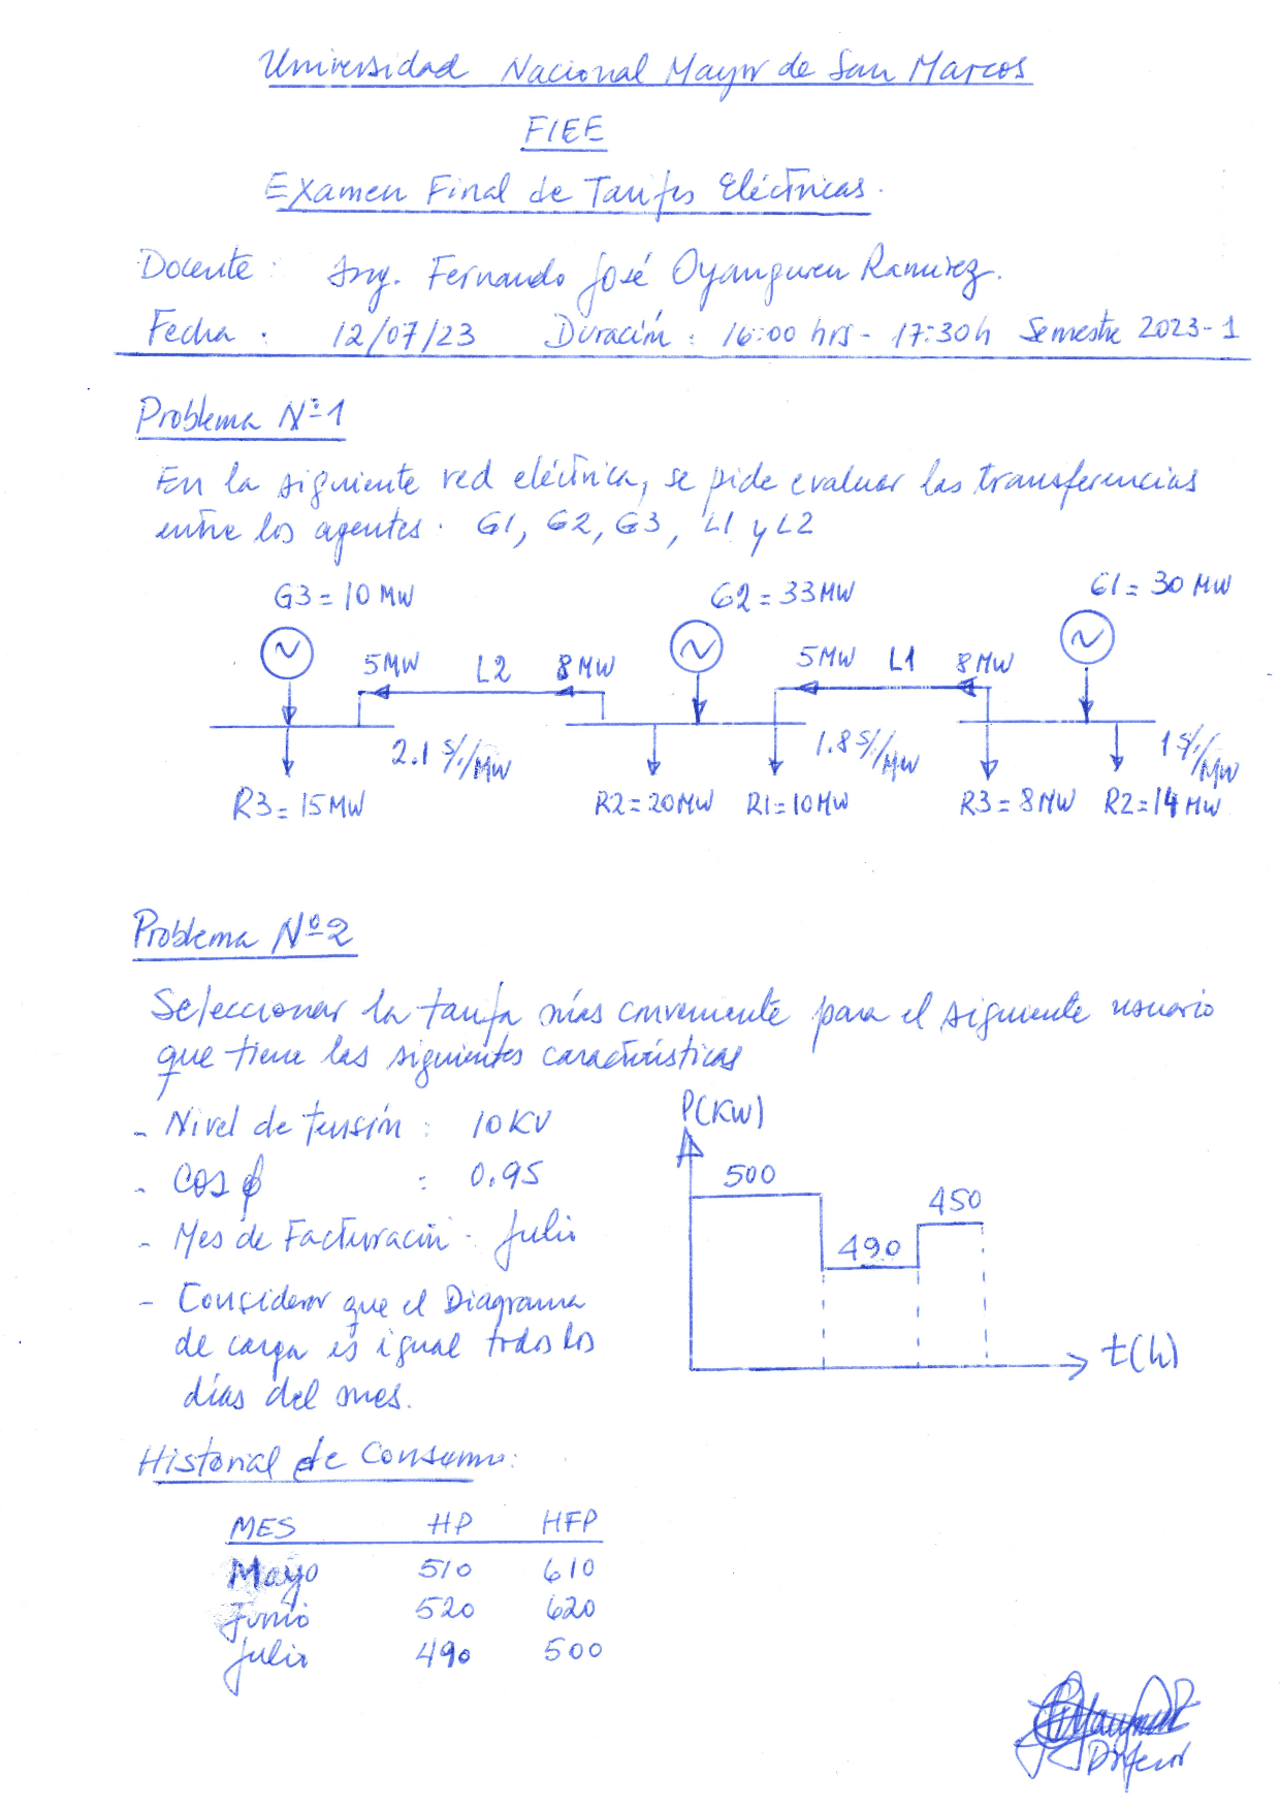 Universidad Nacional Mayor de San Marcos
FIEE
Examen Final de Tarifas Eléctricas.
Docente: Ing. Fernando José Oyanguren Ramirez.
Fecha: 12/07/23 Duración: 16:00 hrs - 17:30h Semestre 2023-1
Problema Nº1
En la siguiente red eléctrica, se pide evaluar las transferencias
entre los agentes: G1, G2, G3, L1 y L2
G3 = 10 MW G2 = 33 MW G1 = 30 MW
5MW L2 8 MW 5MW L1 8 MW
2.1 S/./MW 1.8 S/./MW 1 S/./MW
R3 = 15 MW R2 = 20 MW R1 = 10 MW R3 = 8 MW R2 = 14 MW
Problema Nº2
Seleccionar la tarifa más conveniente para el siguiente usuario
que tiene las siguientes características
- Nivel de tensión: 10 KV
- Cos ϕ : 0.95
- Mes de Facturación: Julio
- Considerar que el Diagrama
de carga es igual todos los
días del mes.
P(KW)
500
490
450
t(h)
Historial de Consumo:
MES HP HFP
Mayo 510 610
Junio 520 620
Julio 490 500